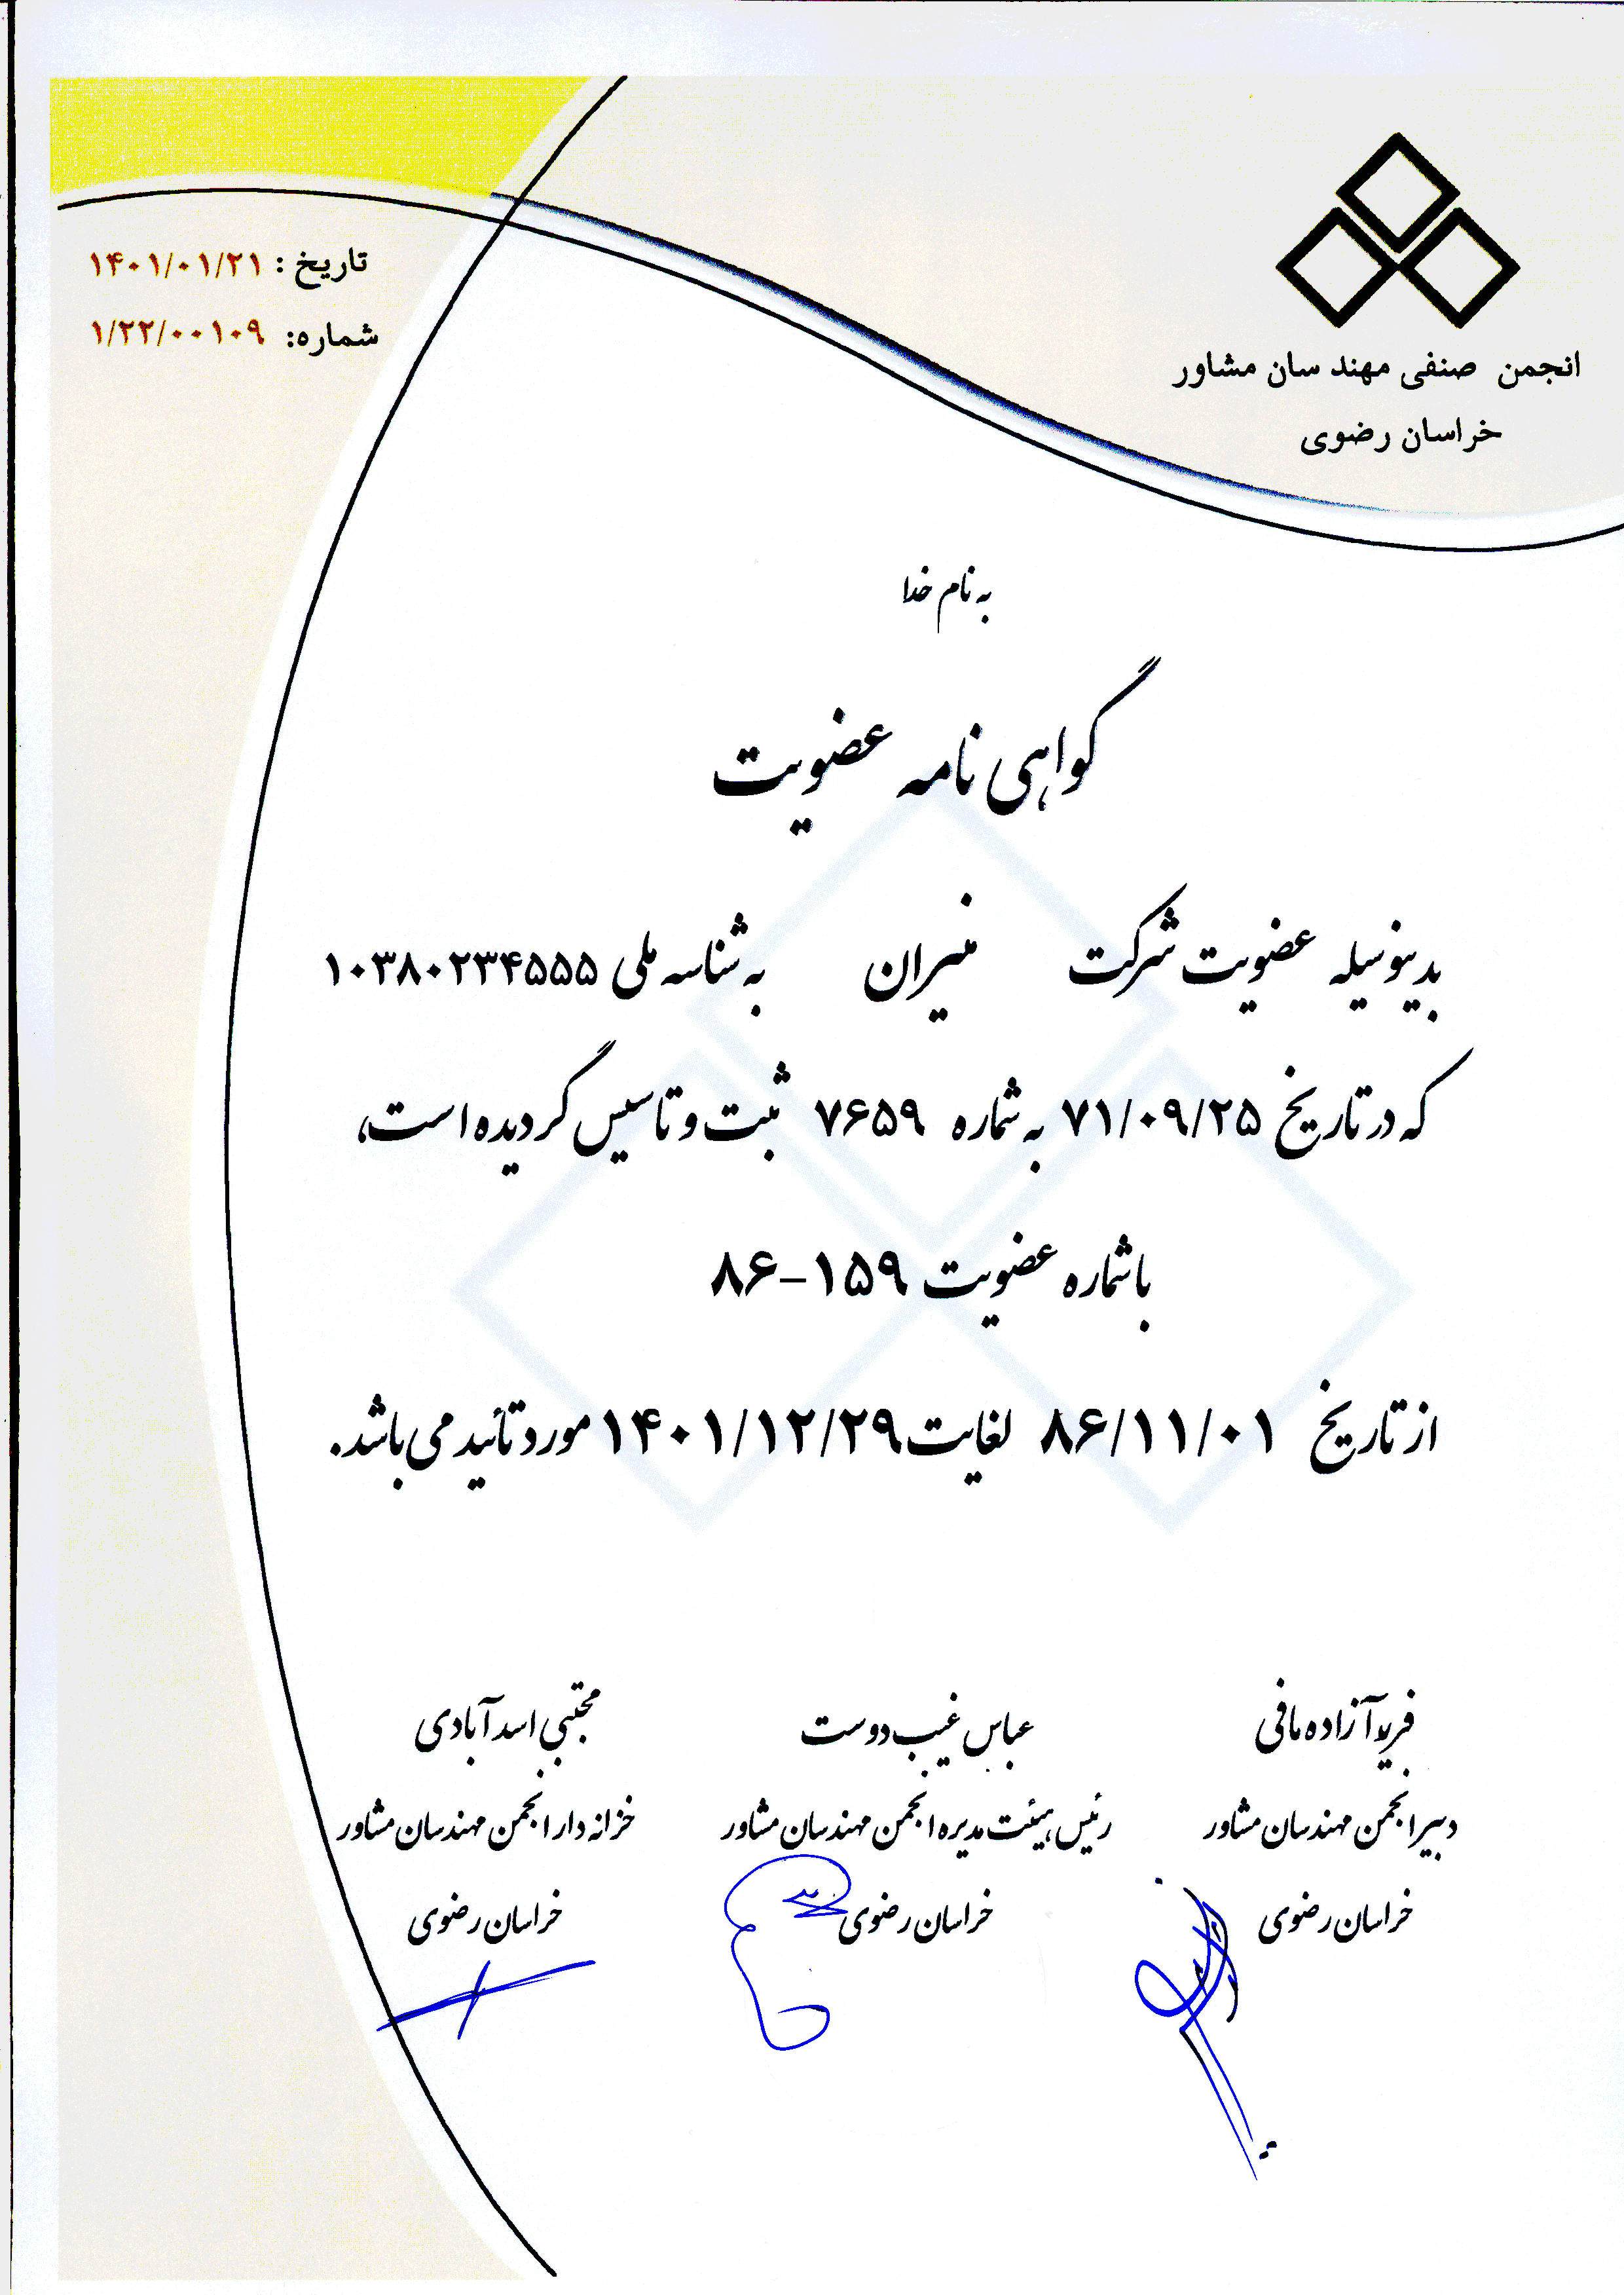 انجمن صنفی مهند سان مشاور
خراسان رضوی
تاریخ : ۱۴۰۱/۰۱/۲۱
شماره: ۱/۲۲/۰۰۱۰۹
به نام خدا
گواهی نامه عضویت
بدینوسیله عضویت شرکت منیران به شناسه ملی ۱۰۳۸۰۲۳۴۵۵۵
که در تاریخ ۷۱/۰۹/۲۵ به شماره ۷۶۵۹ ثبت و تاسیس گردیده است،
با شماره عضویت ۱۵۹-۸۶
از تاریخ ۸۶/۱۱/۰۱ لغایت ۱۴۰۱/۱۲/۲۹ مورد تأئید می باشد.
فریبا آزاده مافی
دبیر انجمن مهندسان مشاور
خراسان رضوی
عباس غیب دوست
رئیس هیئت مدیره انجمن مهندسان مشاور
خراسان رضوی
مجتبی اسد آبادی
خزانه دار انجمن مهندسان مشاور
خراسان رضوی